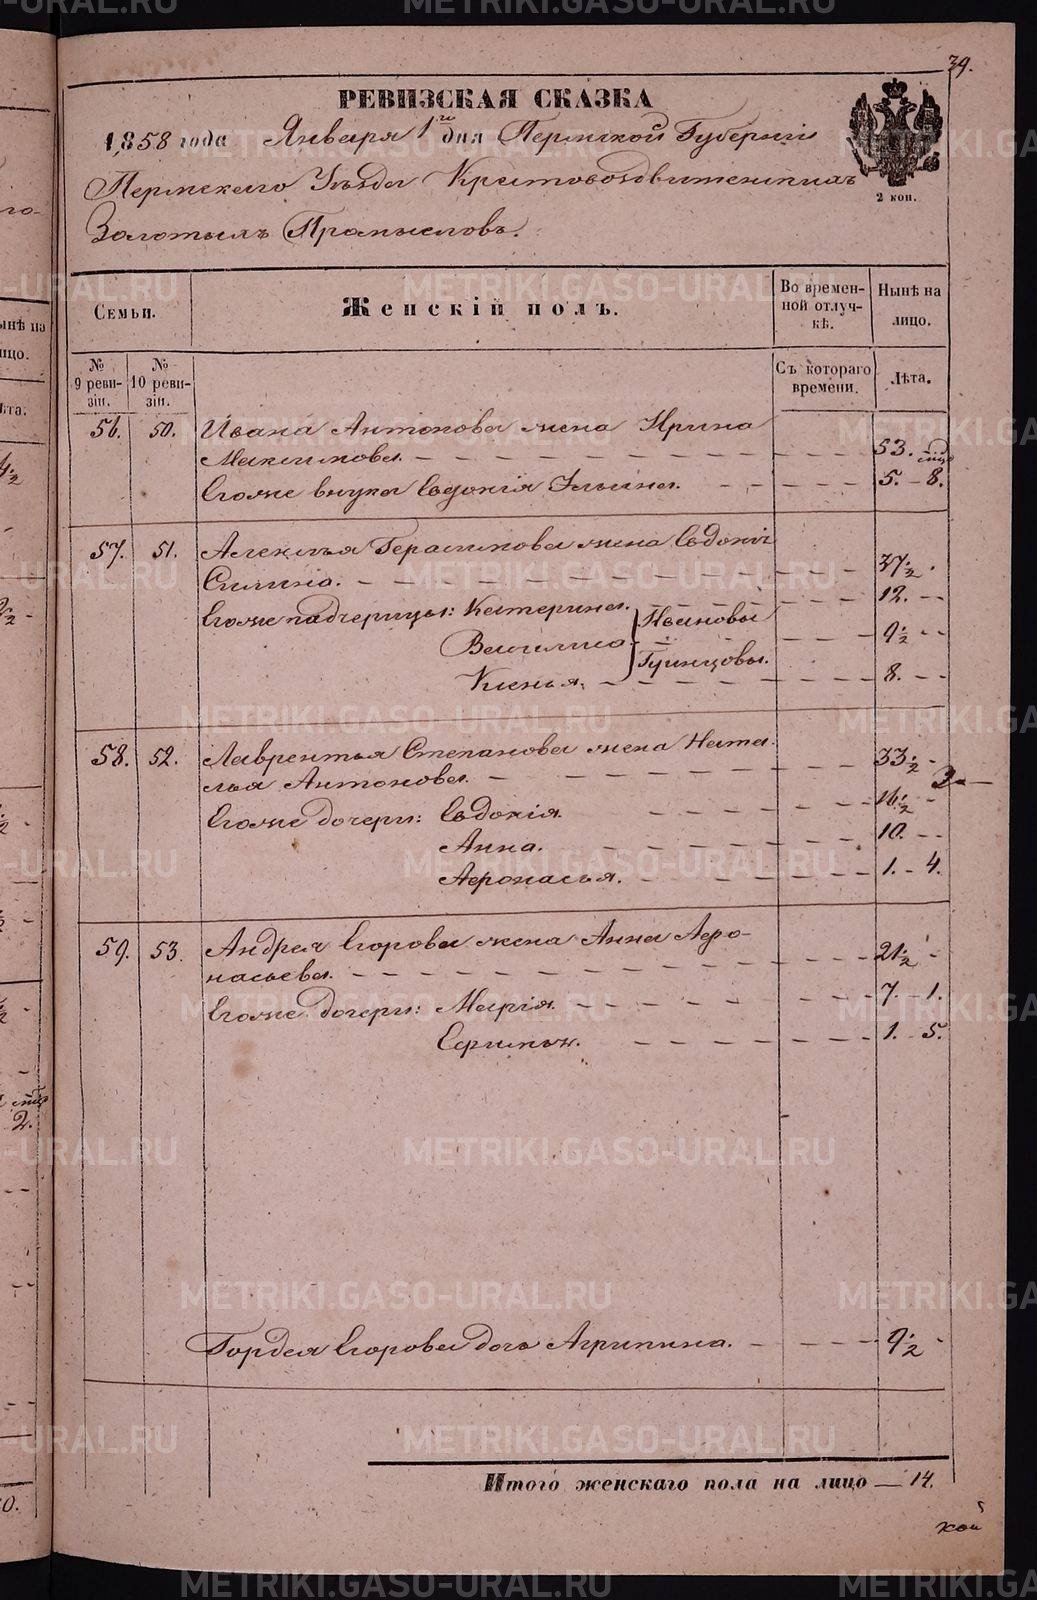 39.
РЕВИЗСКАЯ СКАЗКА
1858 года Января 1го дня Пермской Губерніи
Пермскаго Уѣзда Крестовоздвиженскихъ
Золотыхъ Промысловъ.
2 коп.
Семьи.
Женскій полъ.
Во времен-
ной отлуч-
кѣ.
Нынѣ на
лицо.
№
9 реви-
зіи.
№
10 реви-
зіи.
Съ котораго
времени.
Лѣта.
56. 50. Ивана Антонова жена Ирина
Максимова. 53.
Егоже внука Евдокія Ильина. 5. - 8.
57. 51. Алексѣя Герасимова жена Евдокія
Силина. 37½
Егоже падчерицы: Катерина. Ивановы 12.
Василиса Гринцовы. 9½
Ксенья. 8.
58. 52. Лаврентья Степанова жена Ната-
лья Антонова. 33½
Егоже дочери: Евдокія. 16½
Анна. 10.
Афонасья. 1. - 4.
59. 53. Андрея Егорова жена Анна Афо-
насьева. 21½
Егоже дочери: Марія. 7. 1.
Ефимья. 1. - 5.
Гордея Егорова дочь Агрипина. 9½
Итого женскаго пола на лицо — 14.
кой
METRIKI.GASO-URAL.RU